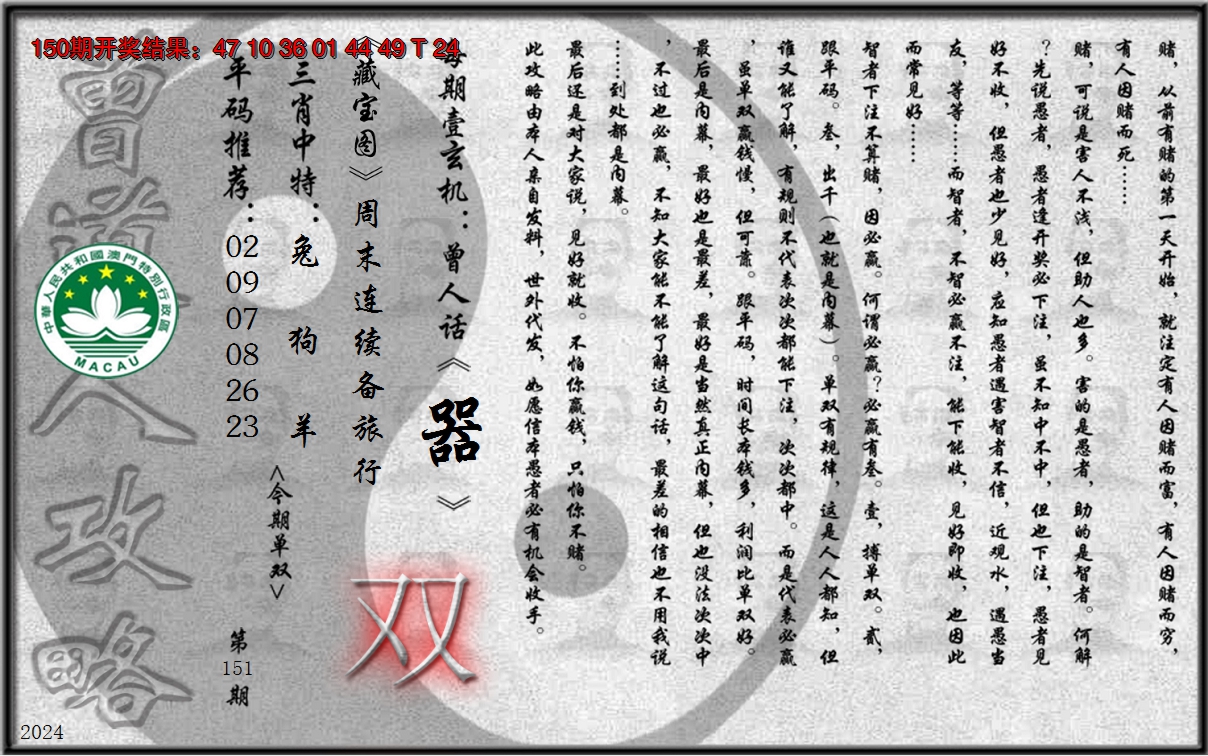 150期开奖结果：47 10 36 01 44 49 T 24
赌，从前有赌的第一天开始，就注定有人因赌而富，有人因赌而穷，
有人因赌而死……
赌，可说是害人不浅，但助人也多。害的是愚者，助的是智者。何解
？先说愚者，愚者逢开奖必下注，虽不知中不中，但也下注，愚者见
好不收，但愚者也少见好，应知愚者遇害智者不信，近观水，遇愚当
友，等等……而智者，不智必赢不注，能下能收，见好即收，也因此
而常见好……
智者下注不算赌，因必赢。何谓必赢？必赢有叁。壹，搏单双。贰，
跟平码。叁，出千（也就是内幕）。单双有规律，这是人人都知，但
谁又能了解，有规则不代表次次都能下注，次次都中。而是代表必赢
，虽单双赢钱慢，但可靠。跟平码，时间长本钱多，利润比单双好。
最后是内幕，最好也是最差，最好是当然真正内幕，但也没法次次中
，不过也必赢，不知大家能不能了解这句话，最差的相信也不用我说
……到处都是内幕。
最后还是对大家说，见好就收。不怕你赢钱，只怕你不赌。
此攻略由本人亲自发料，世外代发，如愿信本愚者必有机会收手。
每期壹玄机：曾人话《器》
《藏宝图》周末连续备旅行
双
三肖中特：兔 狗 羊
<今期单双>
平码推荐：02 09 07 08 26 23
第151期
曾道人攻略
中華人民共和國澳門特別行政區
MACAU
2024